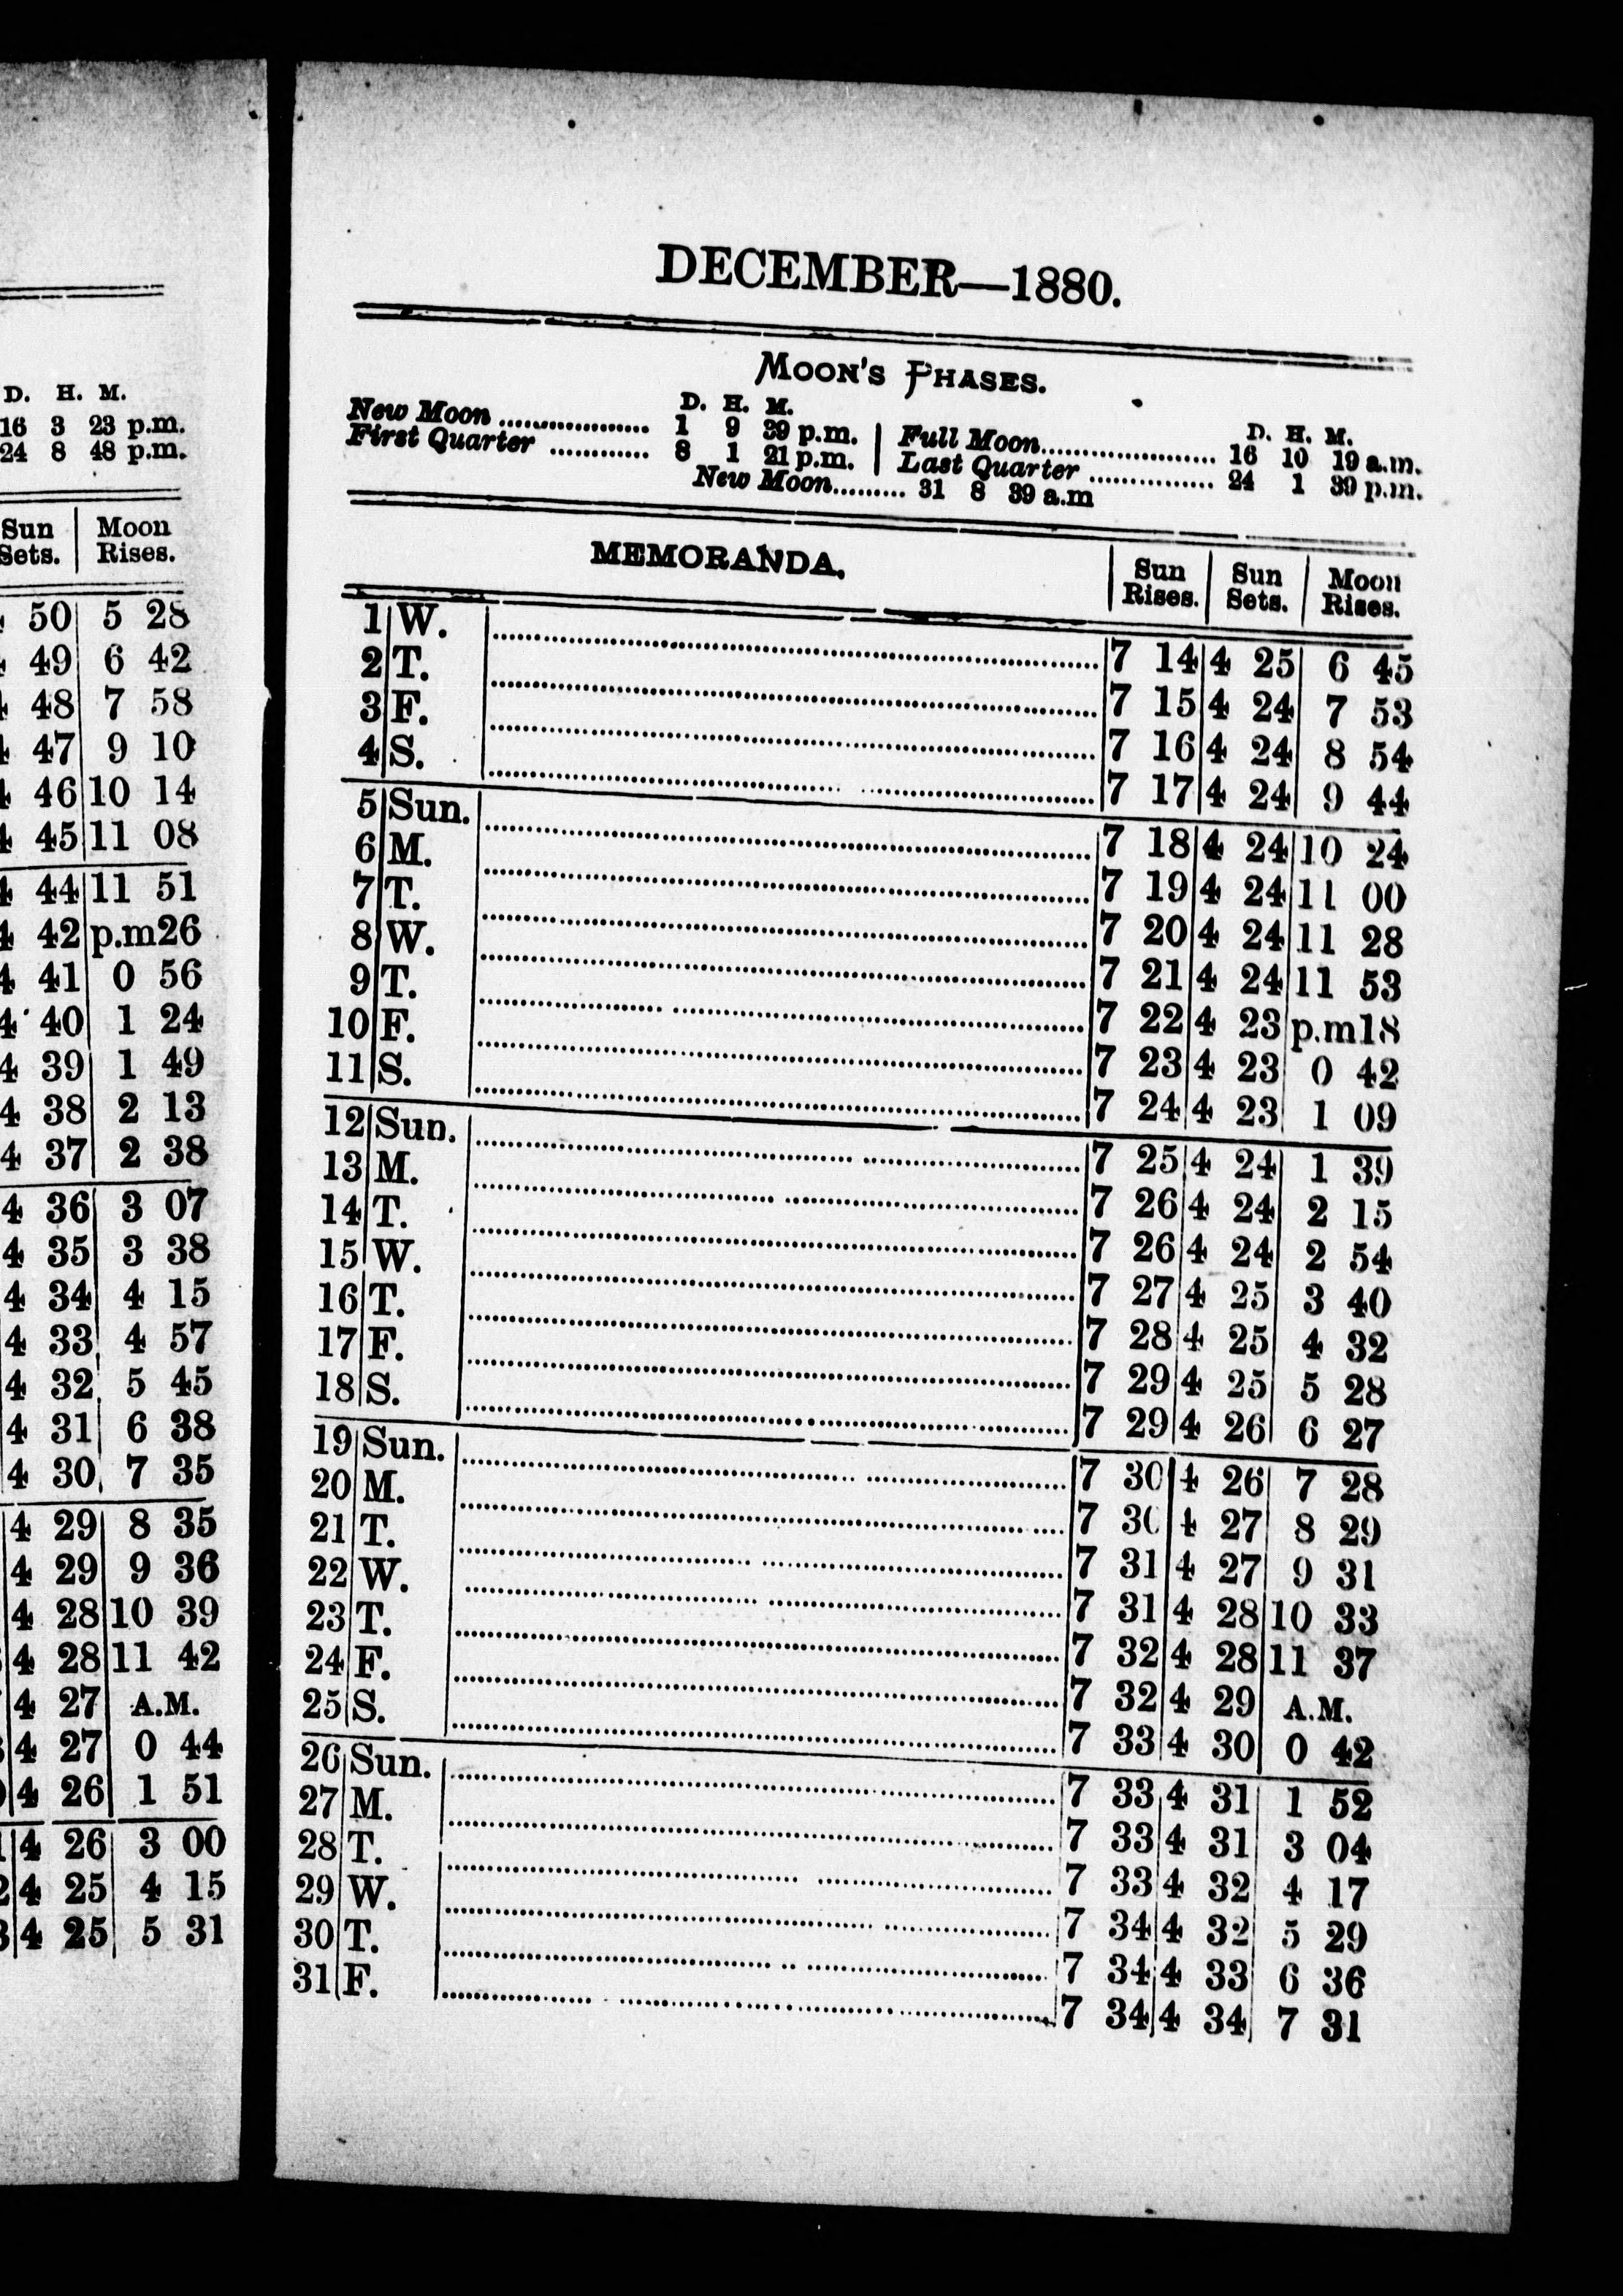 D. H. M.
16 3 23 p.m.
24 8 48 p.m.
Sun Sets. Moon Rises.
50 5 28
49 6 42
48 7 58
47 9 10
46 10 14
45 11 08
44 11 51
42 p.m26
41 0 56
4 40 1 24
4 39 1 49
4 38 2 13
4 37 2 38
4 36 3 07
4 35 3 38
4 34 4 15
4 33 4 57
4 32 5 45
4 31 6 38
4 30 7 35
4 29 8 35
4 29 9 36
4 28 10 39
4 28 11 42
4 27 A.M.
4 27 0 44
4 26 1 51
4 26 3 00
4 25 4 15
4 25 5 31
DECEMBER—1880.
MOON'S PHASES.
D. H. M. D. H. M.
New Moon .................. 1 9 39 p.m. | Full Moon...................... 16 10 19 a.m.
First Quarter ............ 8 1 21 p.m. | Last Quarter ............... 24 1 39 p.m.
New Moon......... 31 8 39 a.m
MEMORANDA. Sun Rises. Sun Sets. Moon Rises.
1 W. 7 14 4 25 6 45
2 T. 7 15 4 24 7 53
3 F. 7 16 4 24 8 54
4 S. 7 17 4 24 9 44
5 Sun. 7 18 4 24 10 24
6 M. 7 19 4 24 11 00
7 T. 7 20 4 24 11 28
8 W. 7 21 4 24 11 53
9 T. 7 22 4 23 p.m18
10 F. 7 23 4 23 0 42
11 S. 7 24 4 23 1 09
12 Sun. 7 25 4 24 1 39
13 M. 7 26 4 24 2 15
14 T. 7 26 4 24 2 54
15 W. 7 27 4 25 3 40
16 T. 7 28 4 25 4 32
17 F. 7 29 4 25 5 28
18 S. 7 29 4 26 6 27
19 Sun. 7 30 4 26 7 28
20 M. 7 30 4 27 8 29
21 T. 7 31 4 27 9 31
22 W. 7 31 4 28 10 33
23 T. 7 32 4 28 11 37
24 F. 7 32 4 29 A.M.
25 S. 7 33 4 30 0 42
26 Sun. 7 33 4 31 1 52
27 M. 7 33 4 31 3 04
28 T. 7 33 4 32 4 17
29 W. 7 34 4 32 5 29
30 T. 7 34 4 33 6 36
31 F. 7 34 4 34 7 31